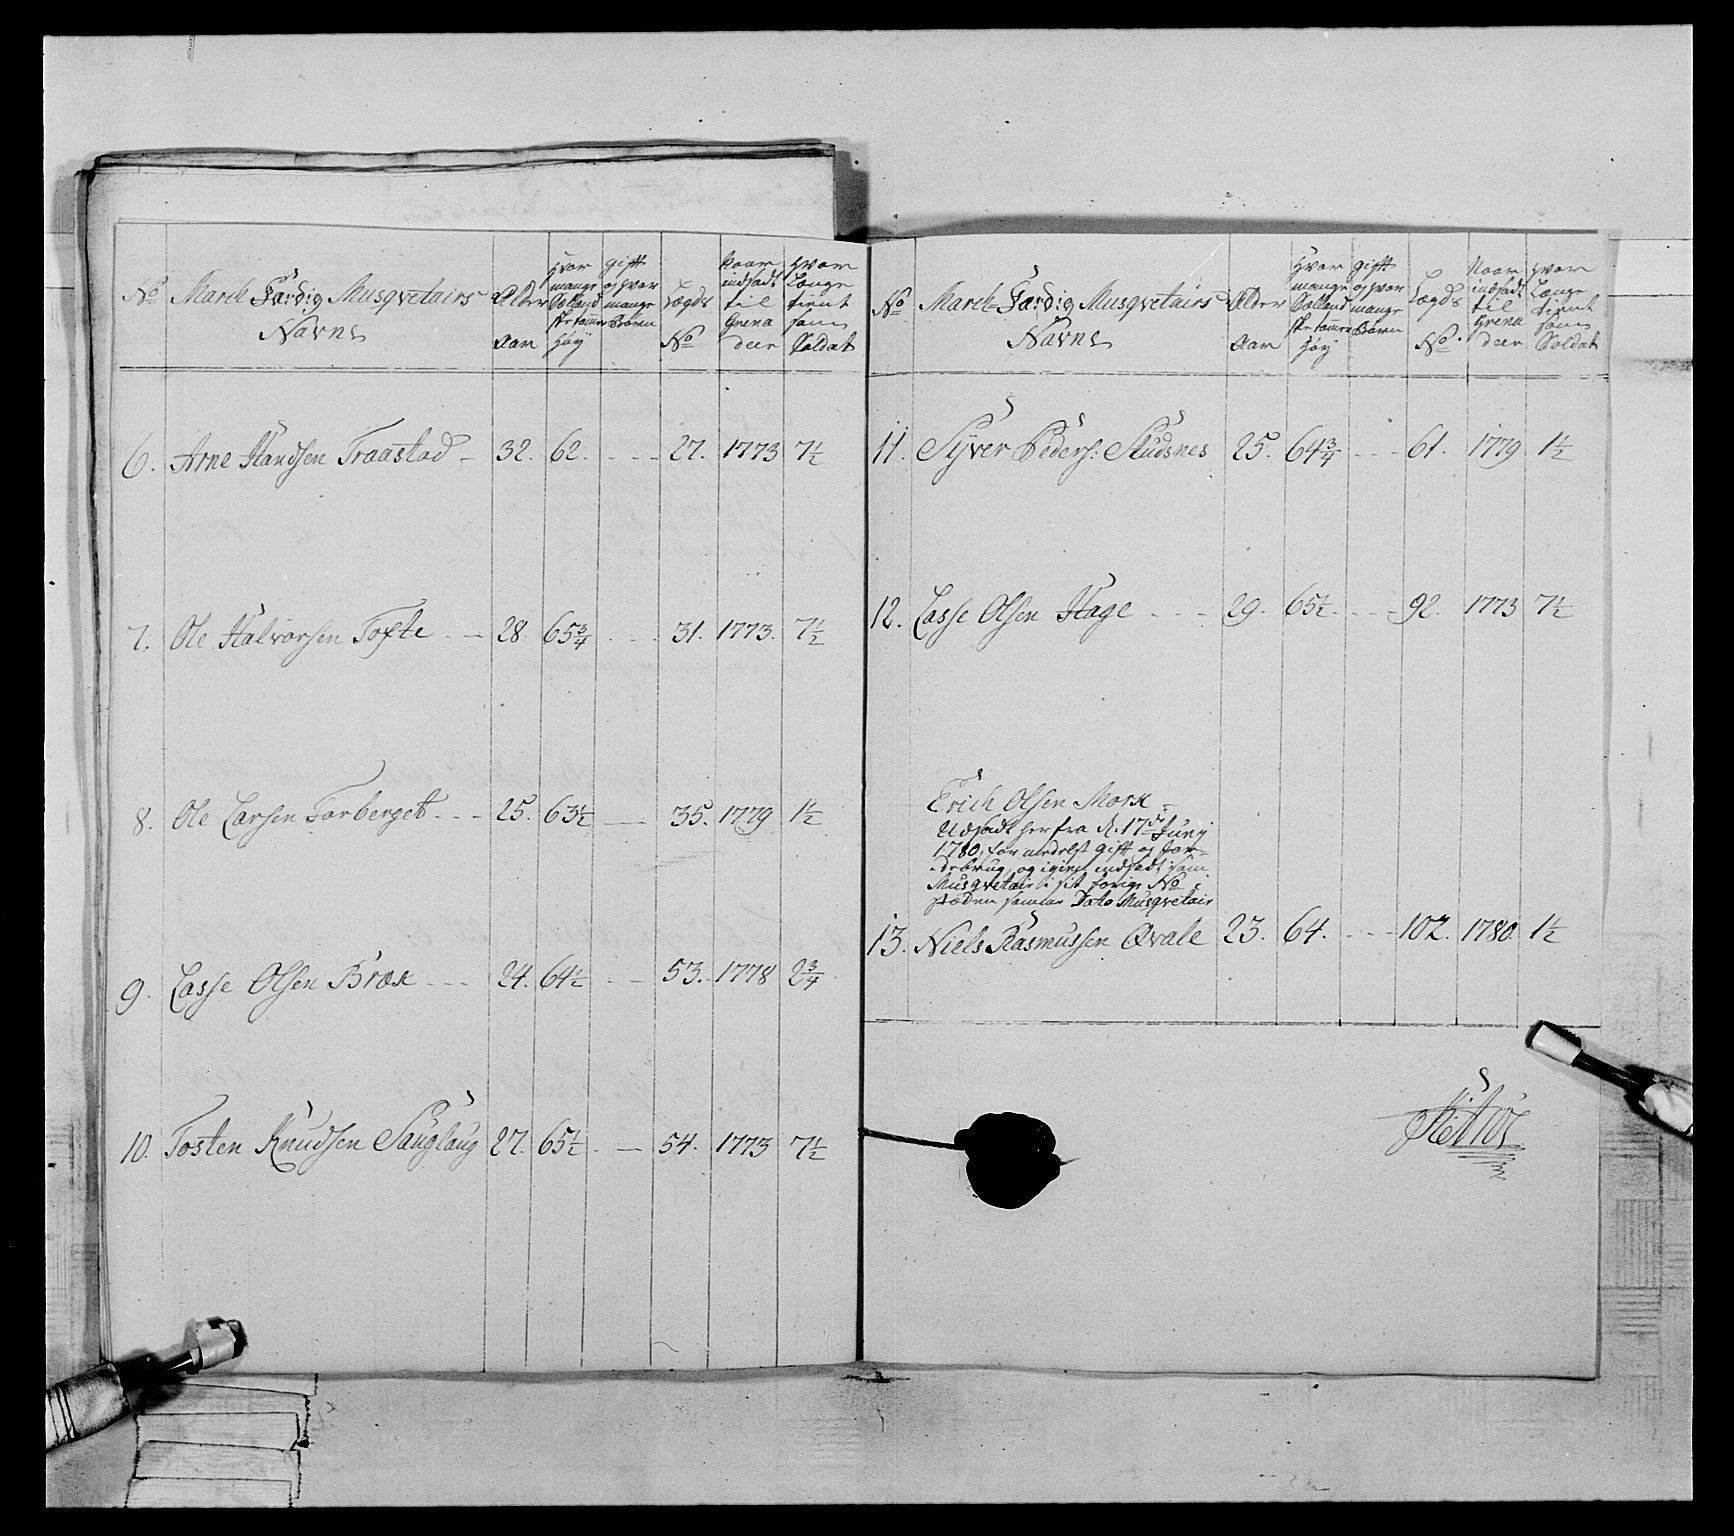 No March Færdig Musqvetairs Alder Hvor mange Sællandske tommer Høÿ Gift og hvor mange Børn Lægds No Naar indsadt til Grenadeer Hvor Længe tient som Soldat
Navne Aar
6. Arne Handsen Traastad - 32. 62. - - - 27. 1773 7½
7. Ole Halvorsen Tofte - - 28. 65¾ - - - 31. 1773. 7½
8. Ole Larsen Forberget - - - 25. 63½ - - 35. 1779 1½
9. Lasse Olsen Bræk - - - 24. 64½ - - 53. 1778 2¾
10. Tosten Knudsen Sauglaug 27. 65½ - - 54. 1773 7½
No March Færdig Musqvetairs Alder Hvor mange Sællandske tommer Høÿ Gift og hvor mange Børn Lægds No. Naar indsadt til Grenadeer Hvor Længe tient som Soldat
Navne Aar
11. Syver Peders: Studsnes 25. 64¾ - - - 61. 1779 1½
12. Lasse Olsen Hage - - - 29. 65½ - - - 92. 1773 7½
Erich Olsen Mork -
Udsadt her fra d. 17de Junÿ
1780, formedelst Gift og Jor-
debrug, og igien indsadt som
Musqvetair i sit forige No
steden samme Dato Musqvetair
13. Niels Rasmussen Qvale 23. 64. - - - 102. 1780. 1½